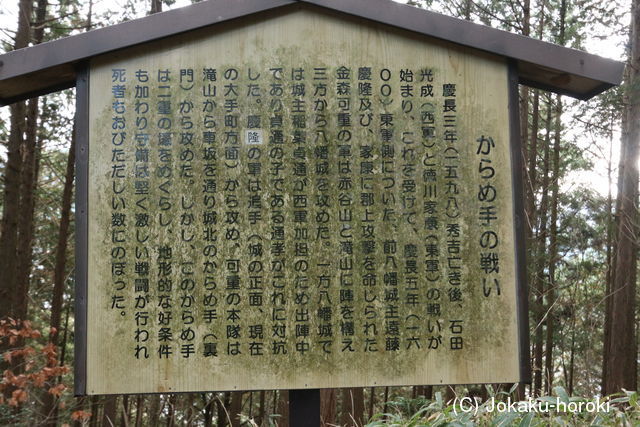 からめ手の戦い
慶長三年（一五九八）秀吉亡き後、石田
光成（西軍）と徳川家康（東軍）の戦いが
始まり、これを受けて、慶長五年（一六
〇〇）東軍側についた、前八幡城主遠藤
慶隆及び、家康に郡上攻撃を命じられた
金森可重の軍は赤谷山と滝山に陣を構え
三方から八幡城を攻めた。一方八幡城で
は城主稲葉貞通が西軍加担のため出陣中
であり貞通の子である通孝がこれに対抗
した。慶隆の軍は追手（城の正面、現在
の大手町方面）から攻め。可重の本隊は
滝山から車坂を通り城北のからめ手（裏
門）から攻めた。しかし、このからめ手
は二重の濠をめぐらし、地形的な好条件
も加わり守備は堅く激しい戦闘が行われ
死者もおびただしい数にのぼった。
(C) Jokaku-horoki